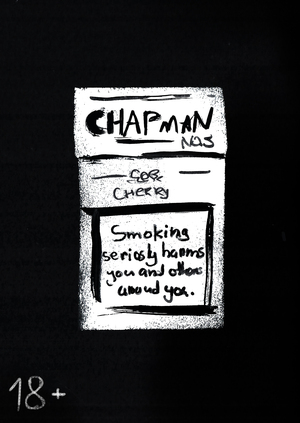 CHAPMAN
NO3
CHERRY
Smoking
seriosly harms
you and others
around you.
18+